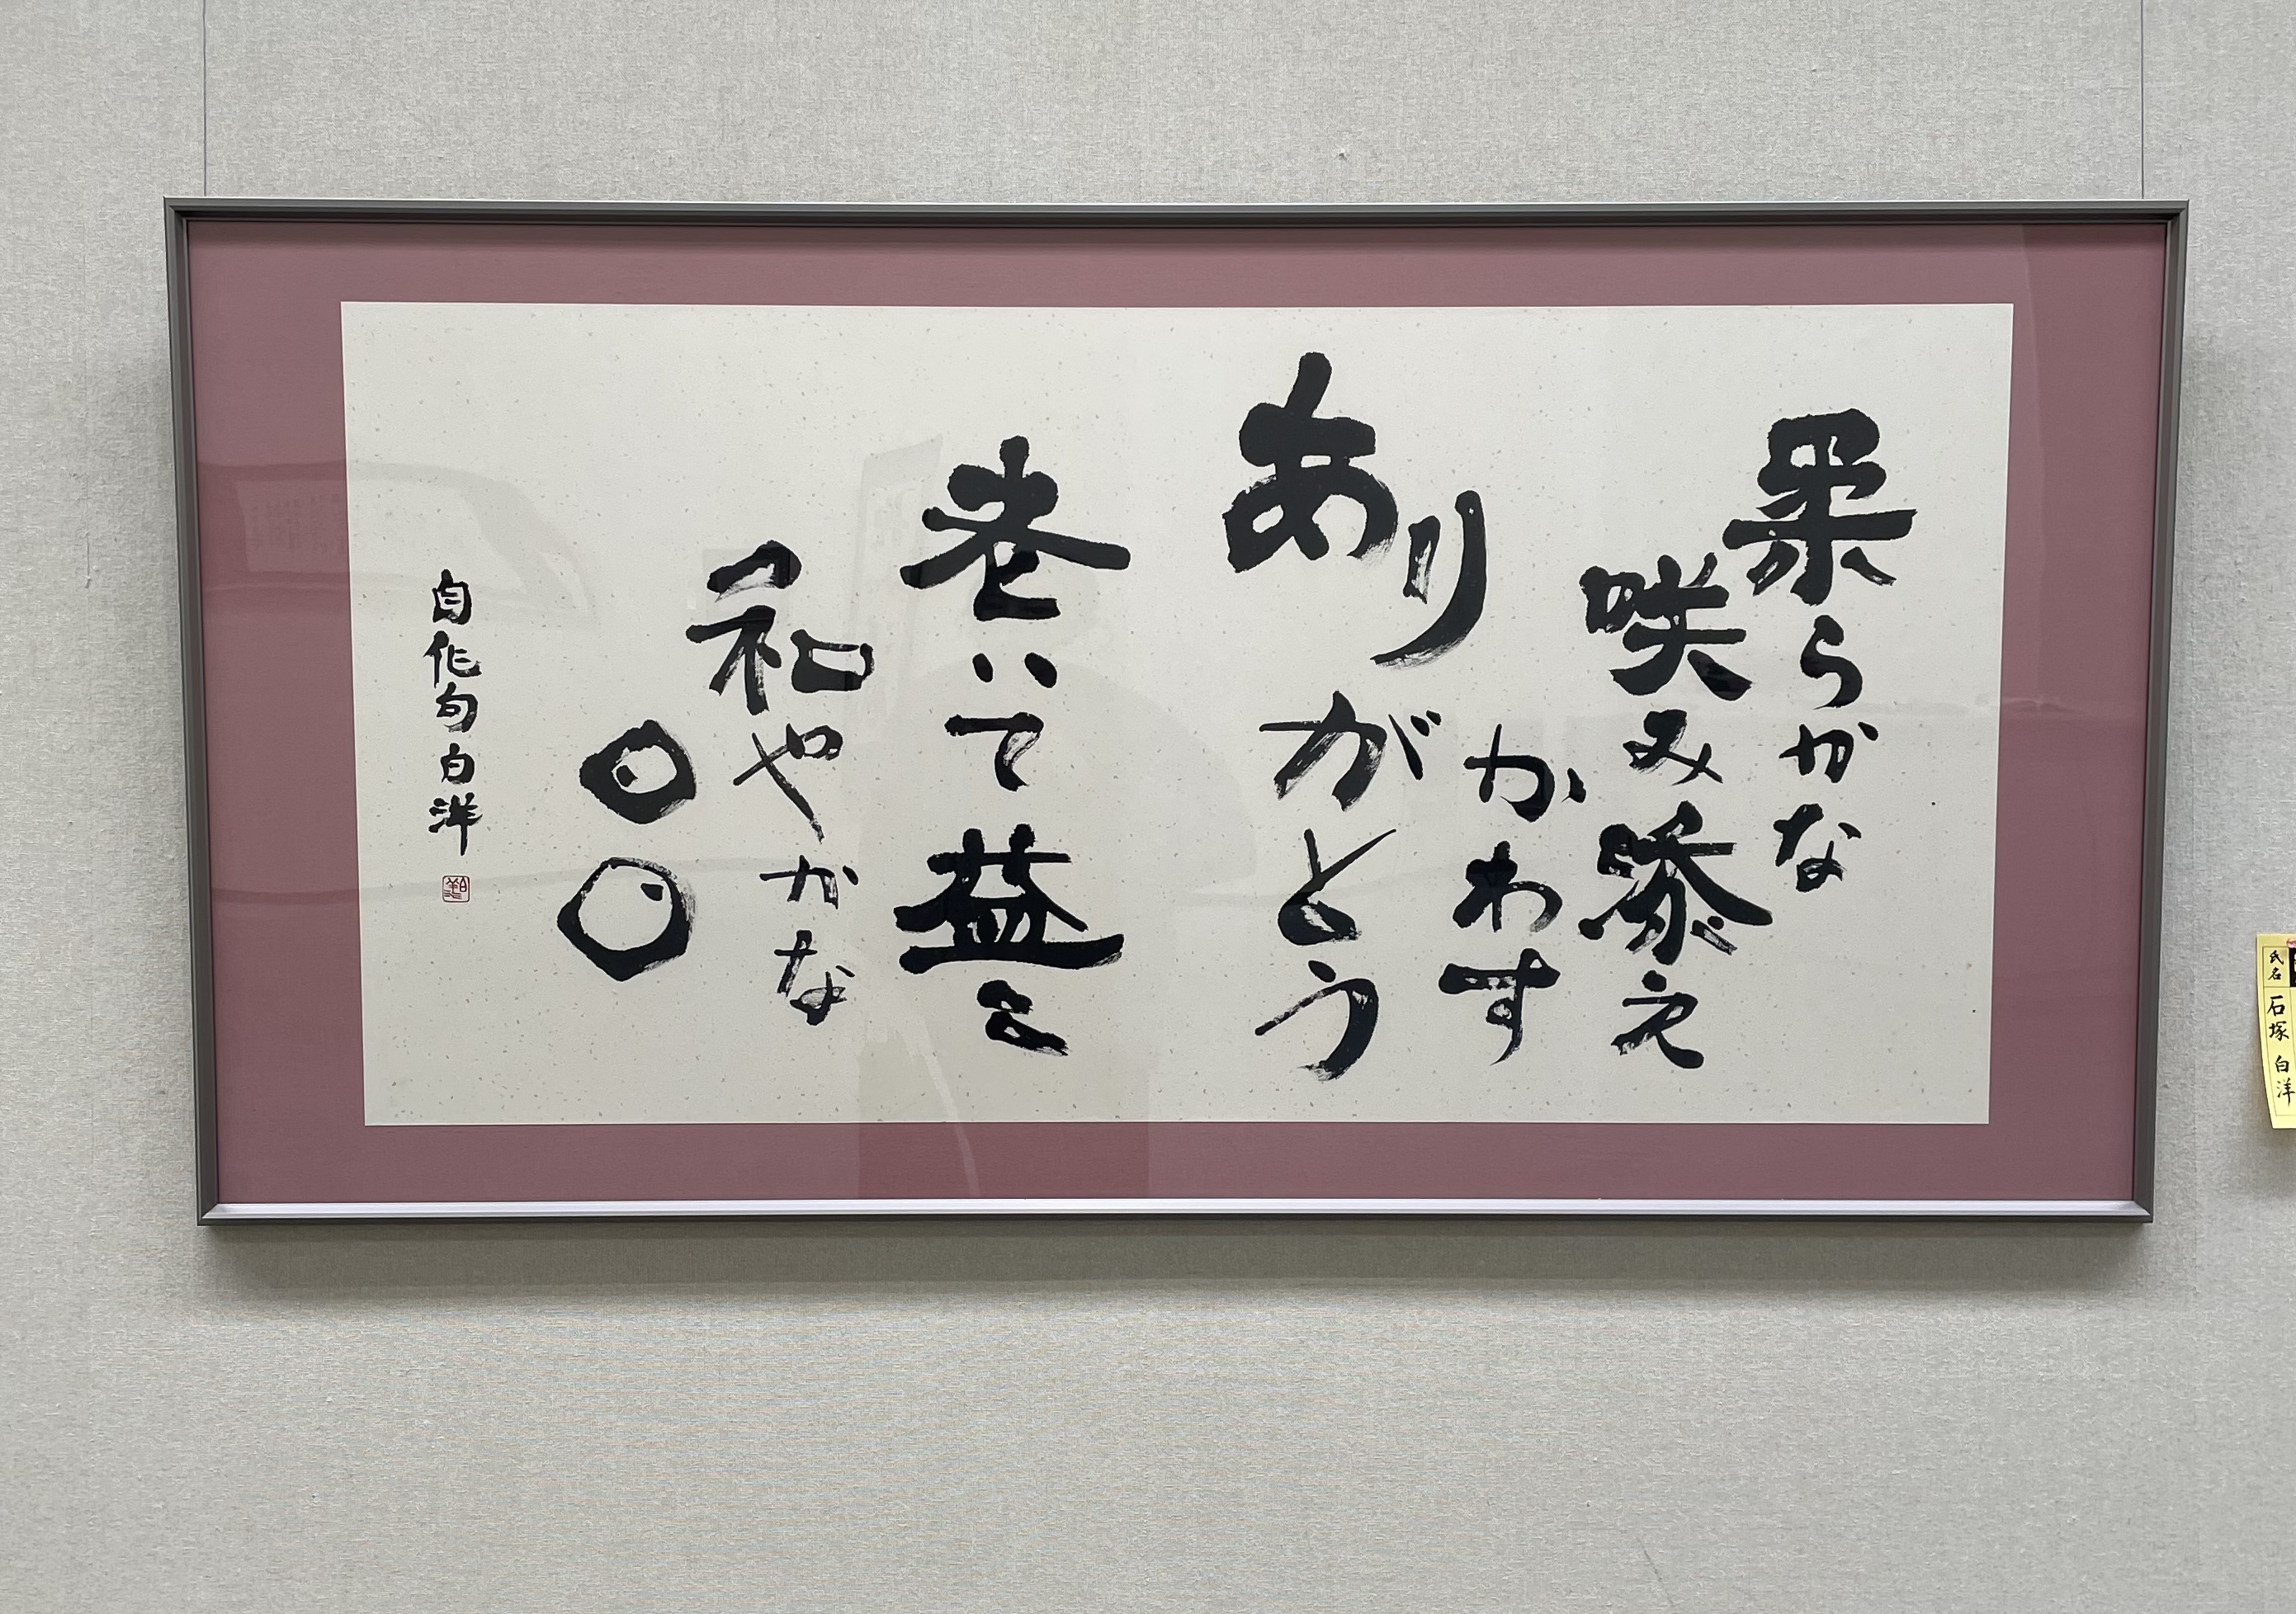 柔らかな
咲み添え
かわす
ありがとう
老いて益々
和やかな
〇〇
自作句白洋
氏名 石塚白洋